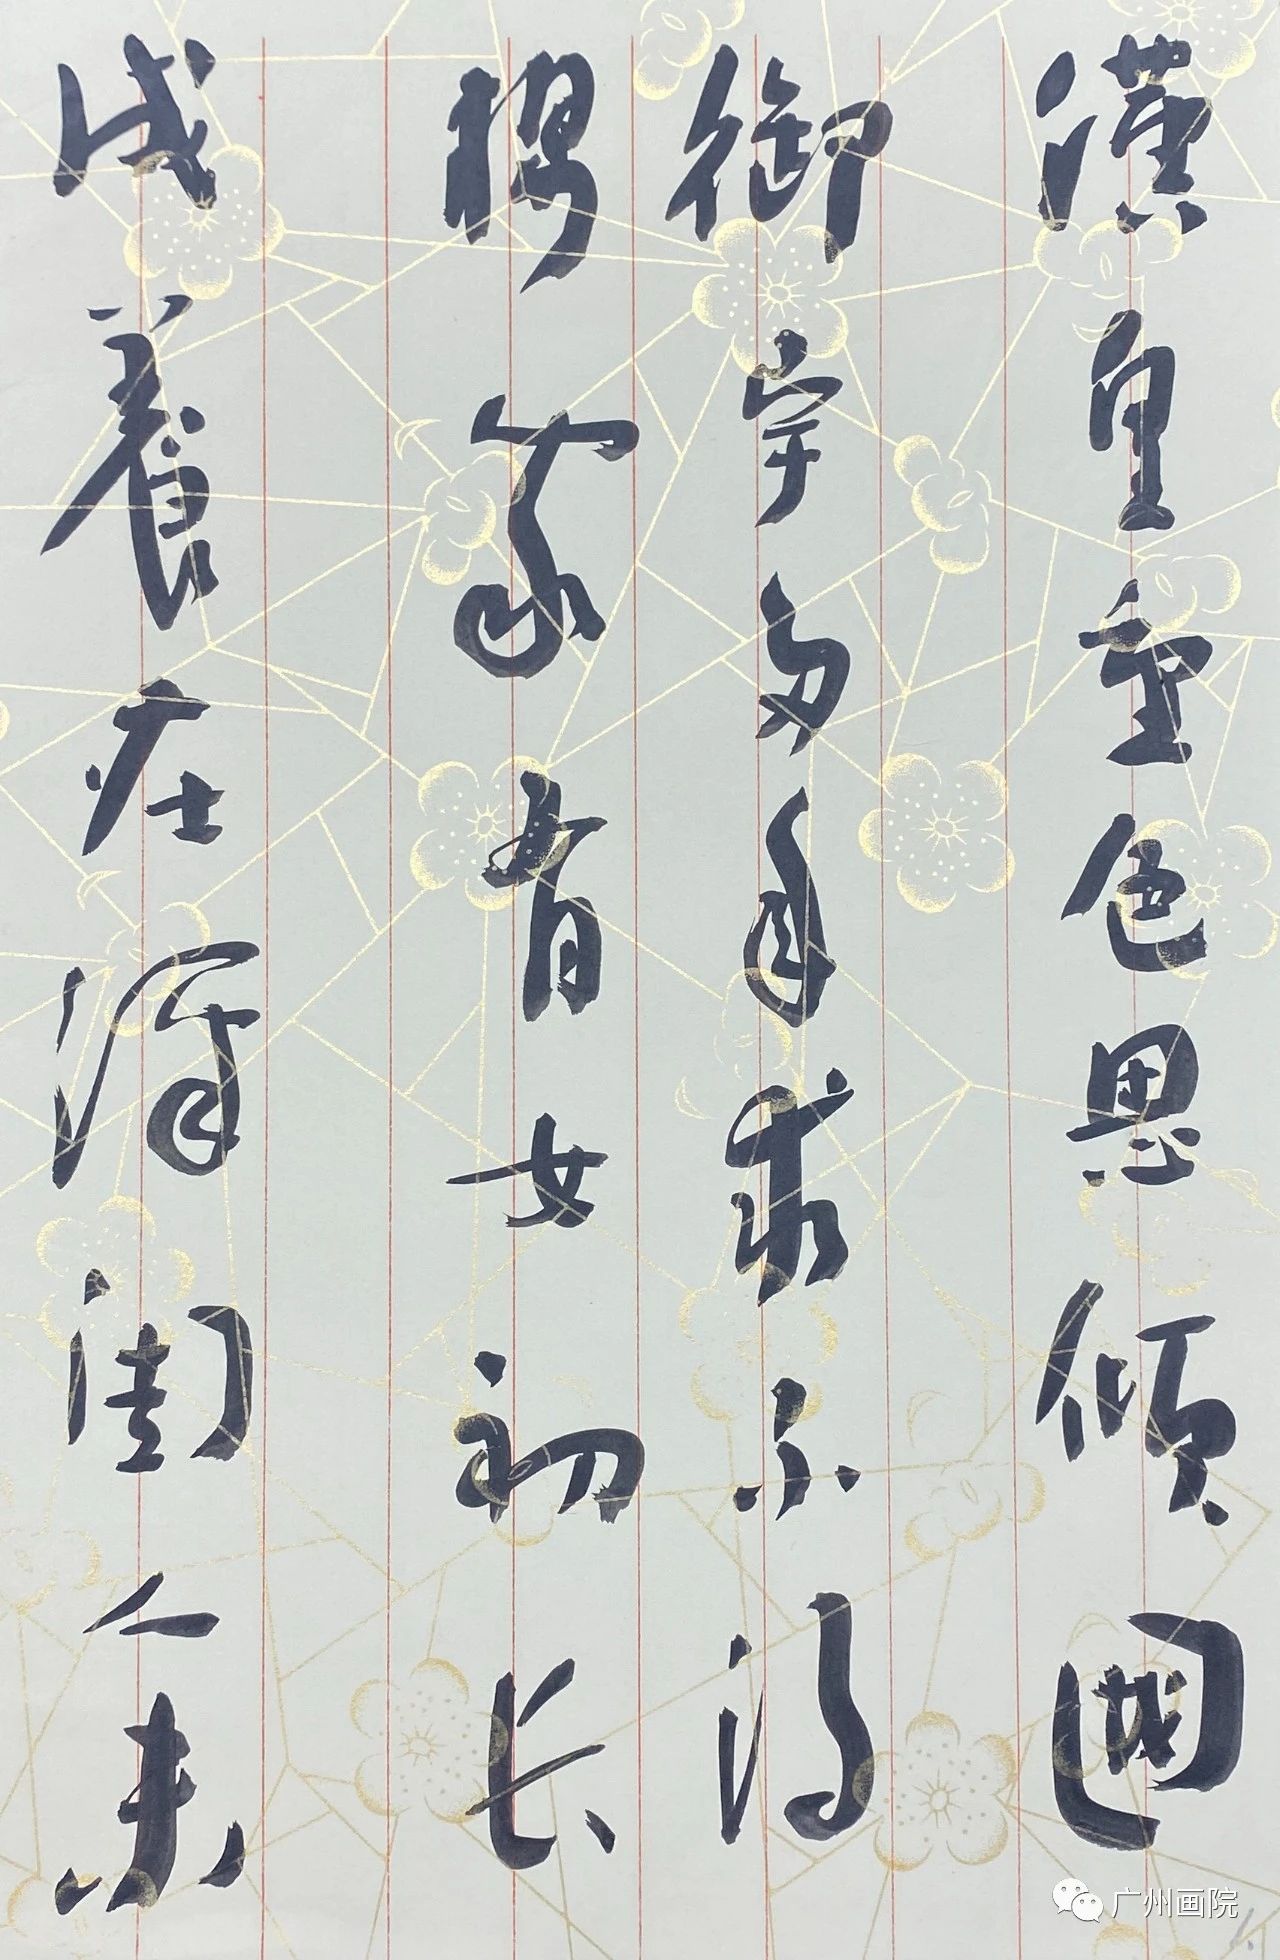 漢皇重色思傾國
御宇多年求不得
楊家有女初长
成養在深闺人未
广州画院